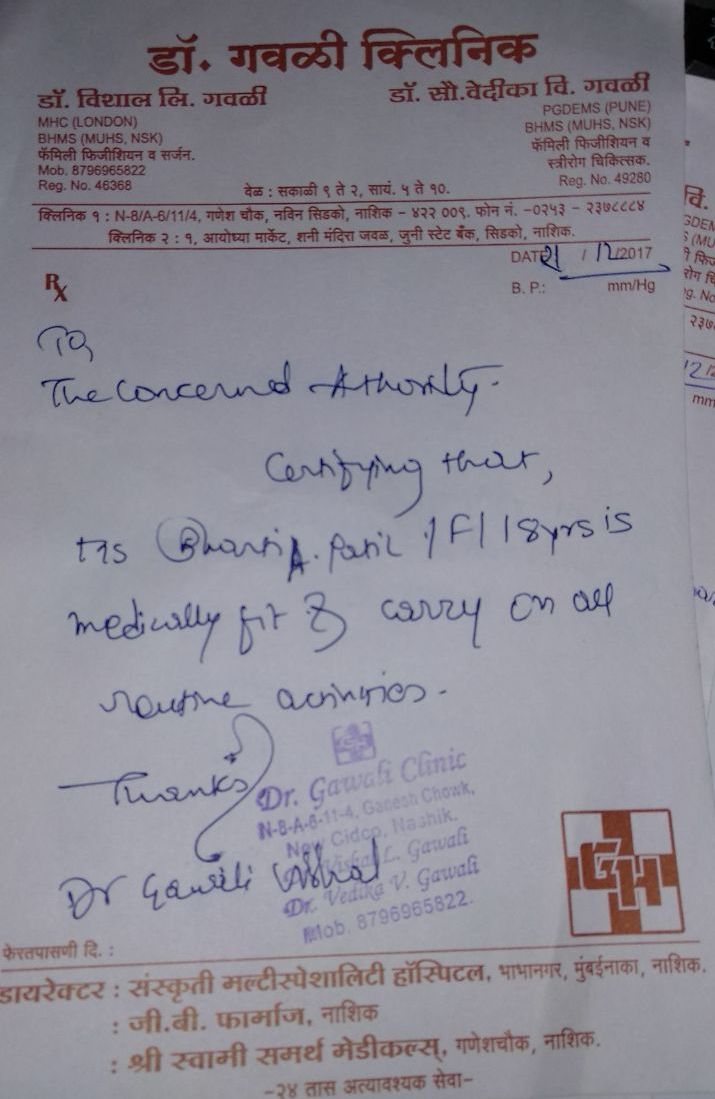 डॉ. गवळी क्लिनिक
डॉ. विशाल लि. गवळी
MHC (LONDON)
BHMS (MUHS, NSK)
फॅमिली फिजीशियन व सर्जन.
Mob. 8796965822
Reg. No. 46368
डॉ. सौ.वेदीका वि. गवळी
PGDEMS (PUNE)
BHMS (MUHS, NSK)
फॅमिली फिजीशियन व
स्त्रीरोग चिकित्सक.
Reg. No. 49280
वेळ : सकाळी ९ ते २, सायं. ५ ते १०.
क्लिनिक १ : N-8/A-6/11/4, गणेश चौक, नविन सिडको, नाशिक - ४२२ ००९. फोन नं. -०२५३ - २३७८८८४
क्लिनिक २ : १, आयोध्या मार्केट, शनी मंदिरा जवळ, जुनी स्टेट बँक, सिडको, नाशिक.
DATE / 12/2017
Rx
B. P.: mm/Hg
To,
The Concerned Athority.
Certifying that,
Bharti A. Patil / F / 18yrs is
medically fit & carry on all
routine activities.
Thanks
Dr. Gawali Clinic
N-8-A-6-11-4, Ganesh Chowk,
New Cidco, Nashik.
Vishal L. Gawali
Dr. Vedika V. Gawali
Mob. 8796965822.
Dr Gawali Vishal
GH
फेरतपासणी दि. :
डायरेक्टर : संस्कृती मल्टीस्पेशालिटी हॉस्पिटल, भाभानगर, मुंबईनाका, नाशिक.
: जी.बी. फार्माज, नाशिक
: श्री स्वामी समर्थ मेडीकल्स्, गणेशचौक, नाशिक.
-२४ तास अत्यावश्यक सेवा-